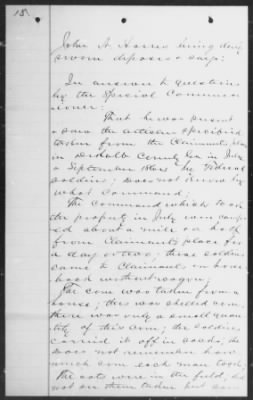 15.
John A. Harris being duly
sworn deposes & says:
In answer to questions
by the Special Commis
sioner:
That he was present
& saw the articles specified
taken from the Claimants place
in DeKalb County Ga in July
& September 1864 by Federal
soldiers; does not know by
what command;
The command which took
the property in July were camp
ed about a mile or half
from Claimants place for
a day or two; these soldiers
came to Claimants on horse
back without wagons;
The corn was taken from a
house; this was shelled corn,
there was only a small quan
tity of this corn; the soldiers
carried it off in sacks; he
does not remember how
much corn each man took;
The oats were in the field, did
not see them taken but saw